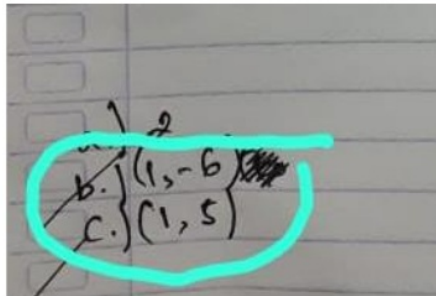 a.) 2
b.) (1, -6)
c.) (1, 5)